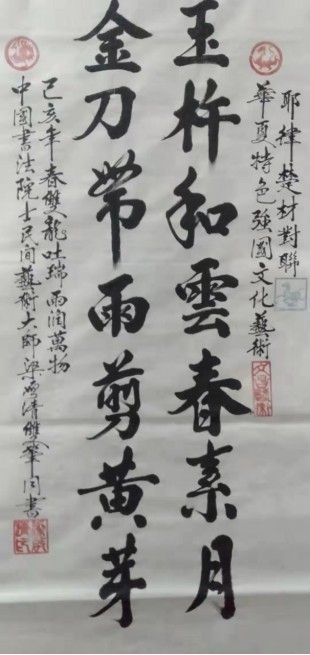 耶律楚材對聯
華夏特色強國文化藝術
玉杵和雲春素月
金刀帶雨剪黃芽
己亥年春雙龍吐瑞雨润萬物
中國書法院士民间藝術大師梁清雙筆同書